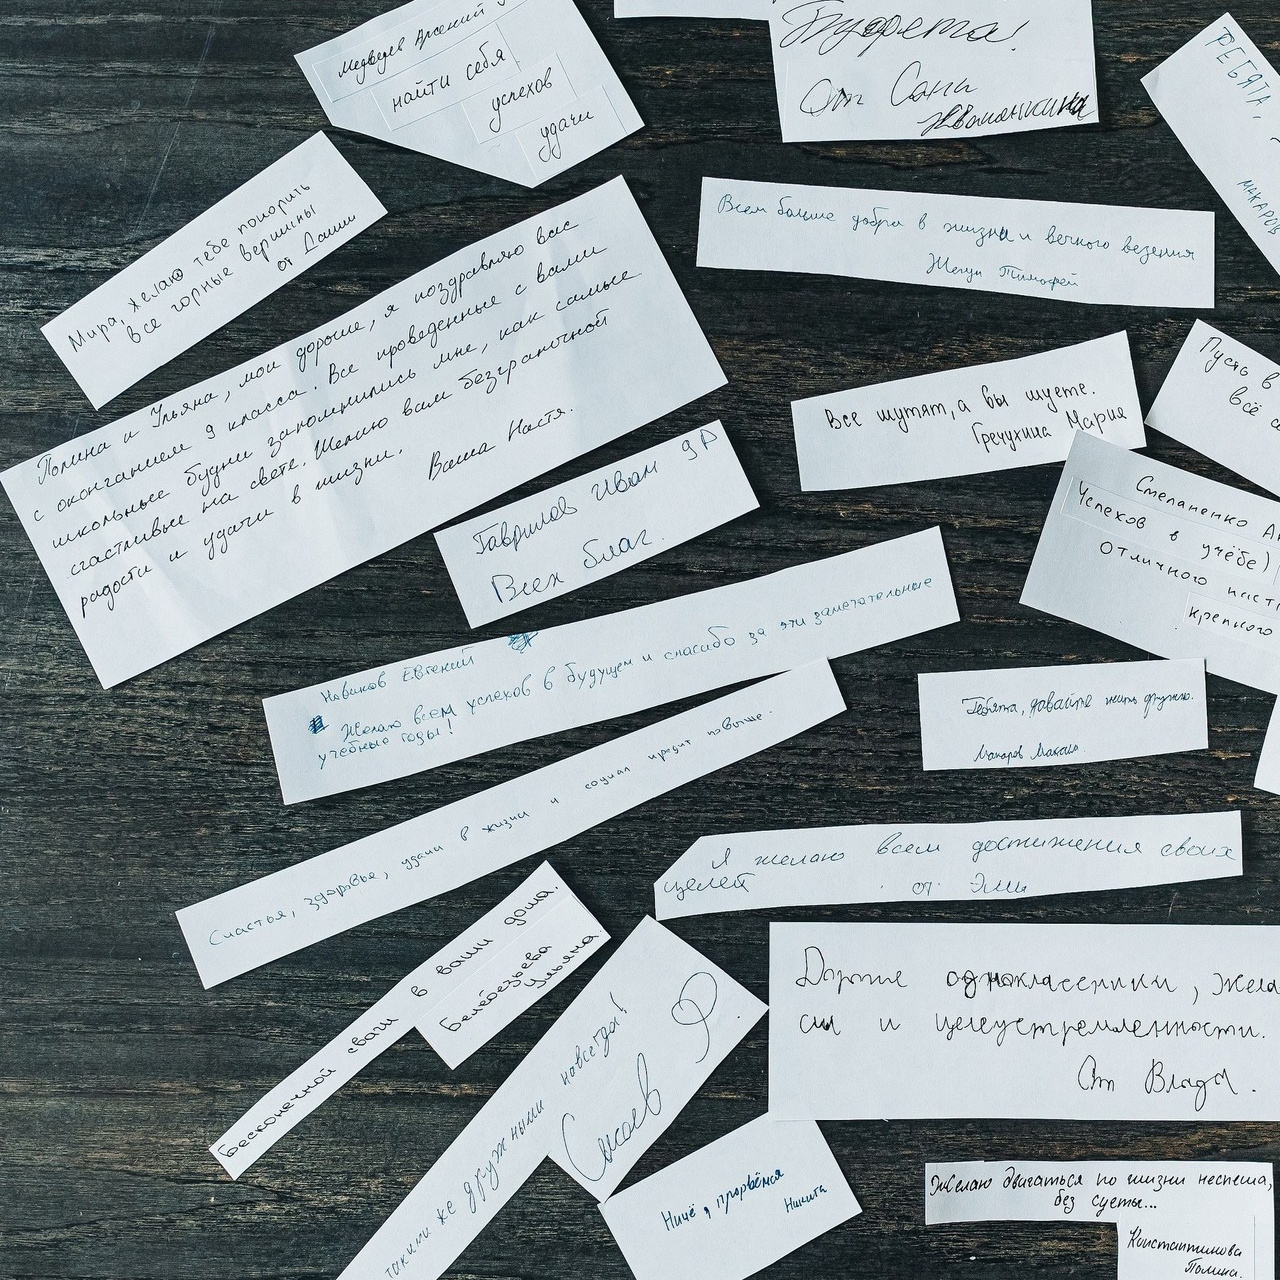 Медведев Арсений
найти себя
успехов
удачи
От Сани
РЕБЯТА,
МАКАРОВ
Мира, желаю тебе покорить
все горные вершины
от Даши
Всем больше добра в жизни и вечного везения
Жегун Тимофей
Полина и Ульяна, мои дорогие, я поздравляю вас
с окончанием 9 класса. Все проведенные с вами
школьные будни запомнились мне, как самые
счастливые на свете. Желаю вам безграничной
радости и удачи в жизни.
Ваша Настя.
Все шутят, а вы шутете.
Гречухина Мария
Пусть в
всё
Гаврилов Иван 9А
Всех благ.
Степаненко
Успехов в учёбе)
Отличного
крепкого
Новиков Евгений
Желаю всем успехов в будущем и спасибо за эти замечательные
учебные годы!
Ребята, давайте жить дружно.
Макаров Максим
Счастья, здоровье, удачи в жизни и социал кредит повыше.
Я желаю всем достижения своих
целей от Эли
Бесконечной сваги в ваши дома.
Белебезьева
Ульяна.
Дорогие одноклассники, жела
сил и целеустремленности.
От Влада.
такими же дружными навсегда!
Сысоев Р
Ничё, прорвёмся
Никита
Желаю двигаться по жизни неспеша,
без суеты...
Константинова
Полина.